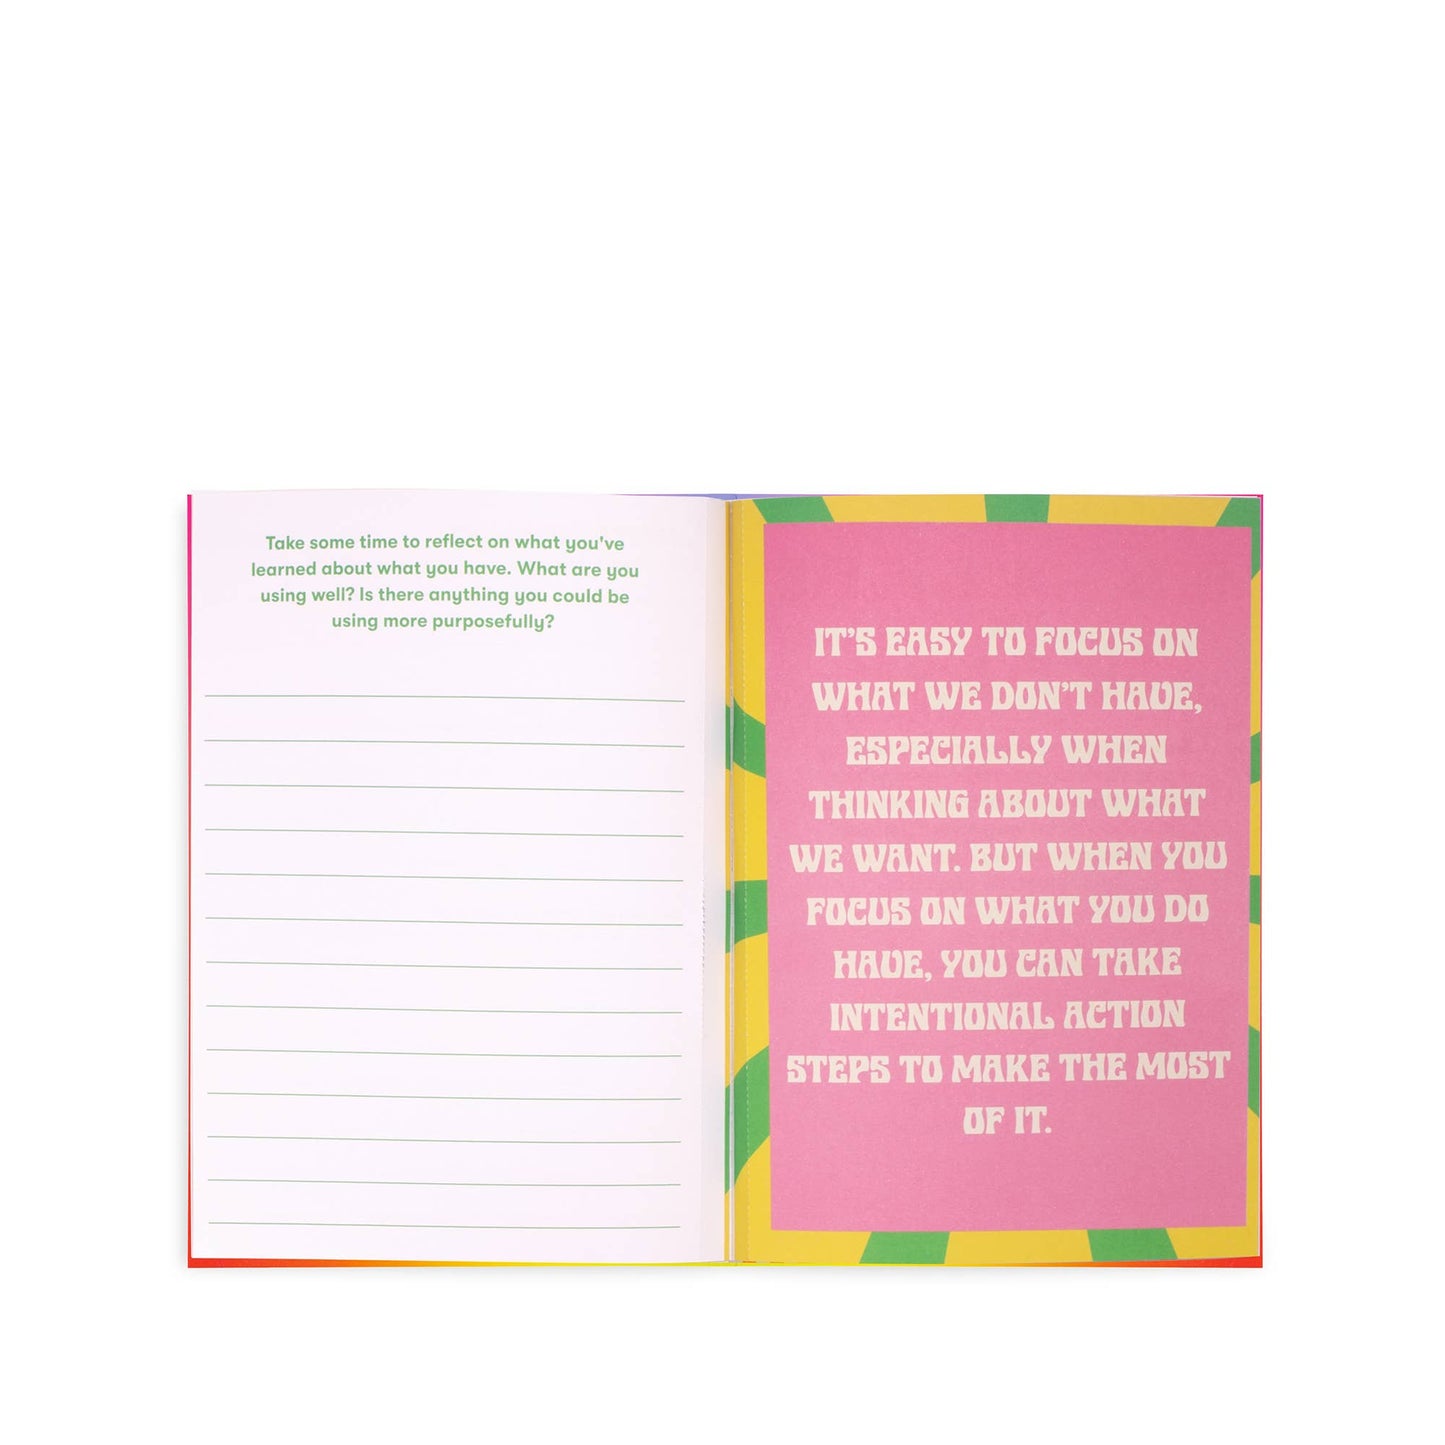 Take some time to reflect on what you've
learned about what you have. What are you
using well? Is there anything you could be
using more purposefully?
IT'S EASY TO FOCUS ON
WHAT WE DON'T HAVE,
ESPECIALLY WHEN
THINKING ABOUT WHAT
WE WANT. BUT WHEN YOU
FOCUS ON WHAT YOU DO
HAVE, YOU CAN TAKE
INTENTIONAL ACTION
STEPS TO MAKE THE MOST
OF IT.